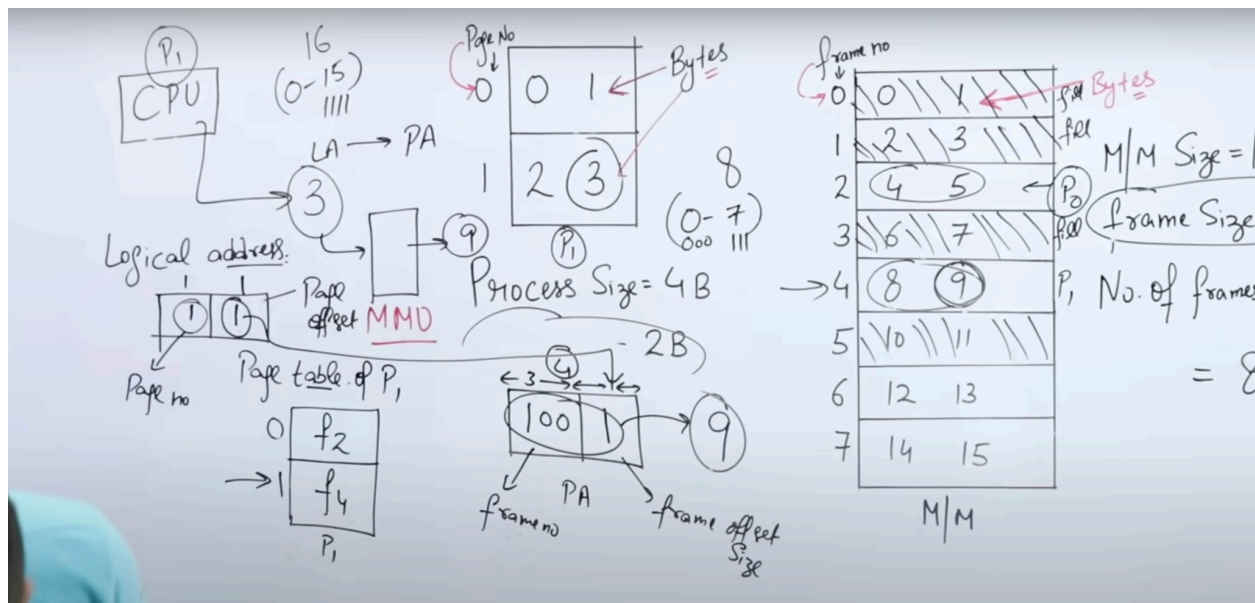 P₁
CPU
16
(0-15)
1111
LA → PA
3
9
MMU
Logical address.
1 1
1 1
Page offset
Page no
Page table of P₁
0 f₂
→ 1 f₄
P₁
Page No
0 0 1
1 2 3
P₁
Bytes
8
(0-7)
000 111
Process Size = 4B
- 2B
4
← 3 →
100 1
9
PA
frame no
frame offset
Size
frame no
0 0 1 fill
1 2 3 fill
2 4 5 ← P₀
3 6 7 fill
→ 4 8 9 P₁
5 10 11
6 12 13
7 14 15
M/M
Bytes
M/M Size = 1
frame Size
No. of frames
= 8